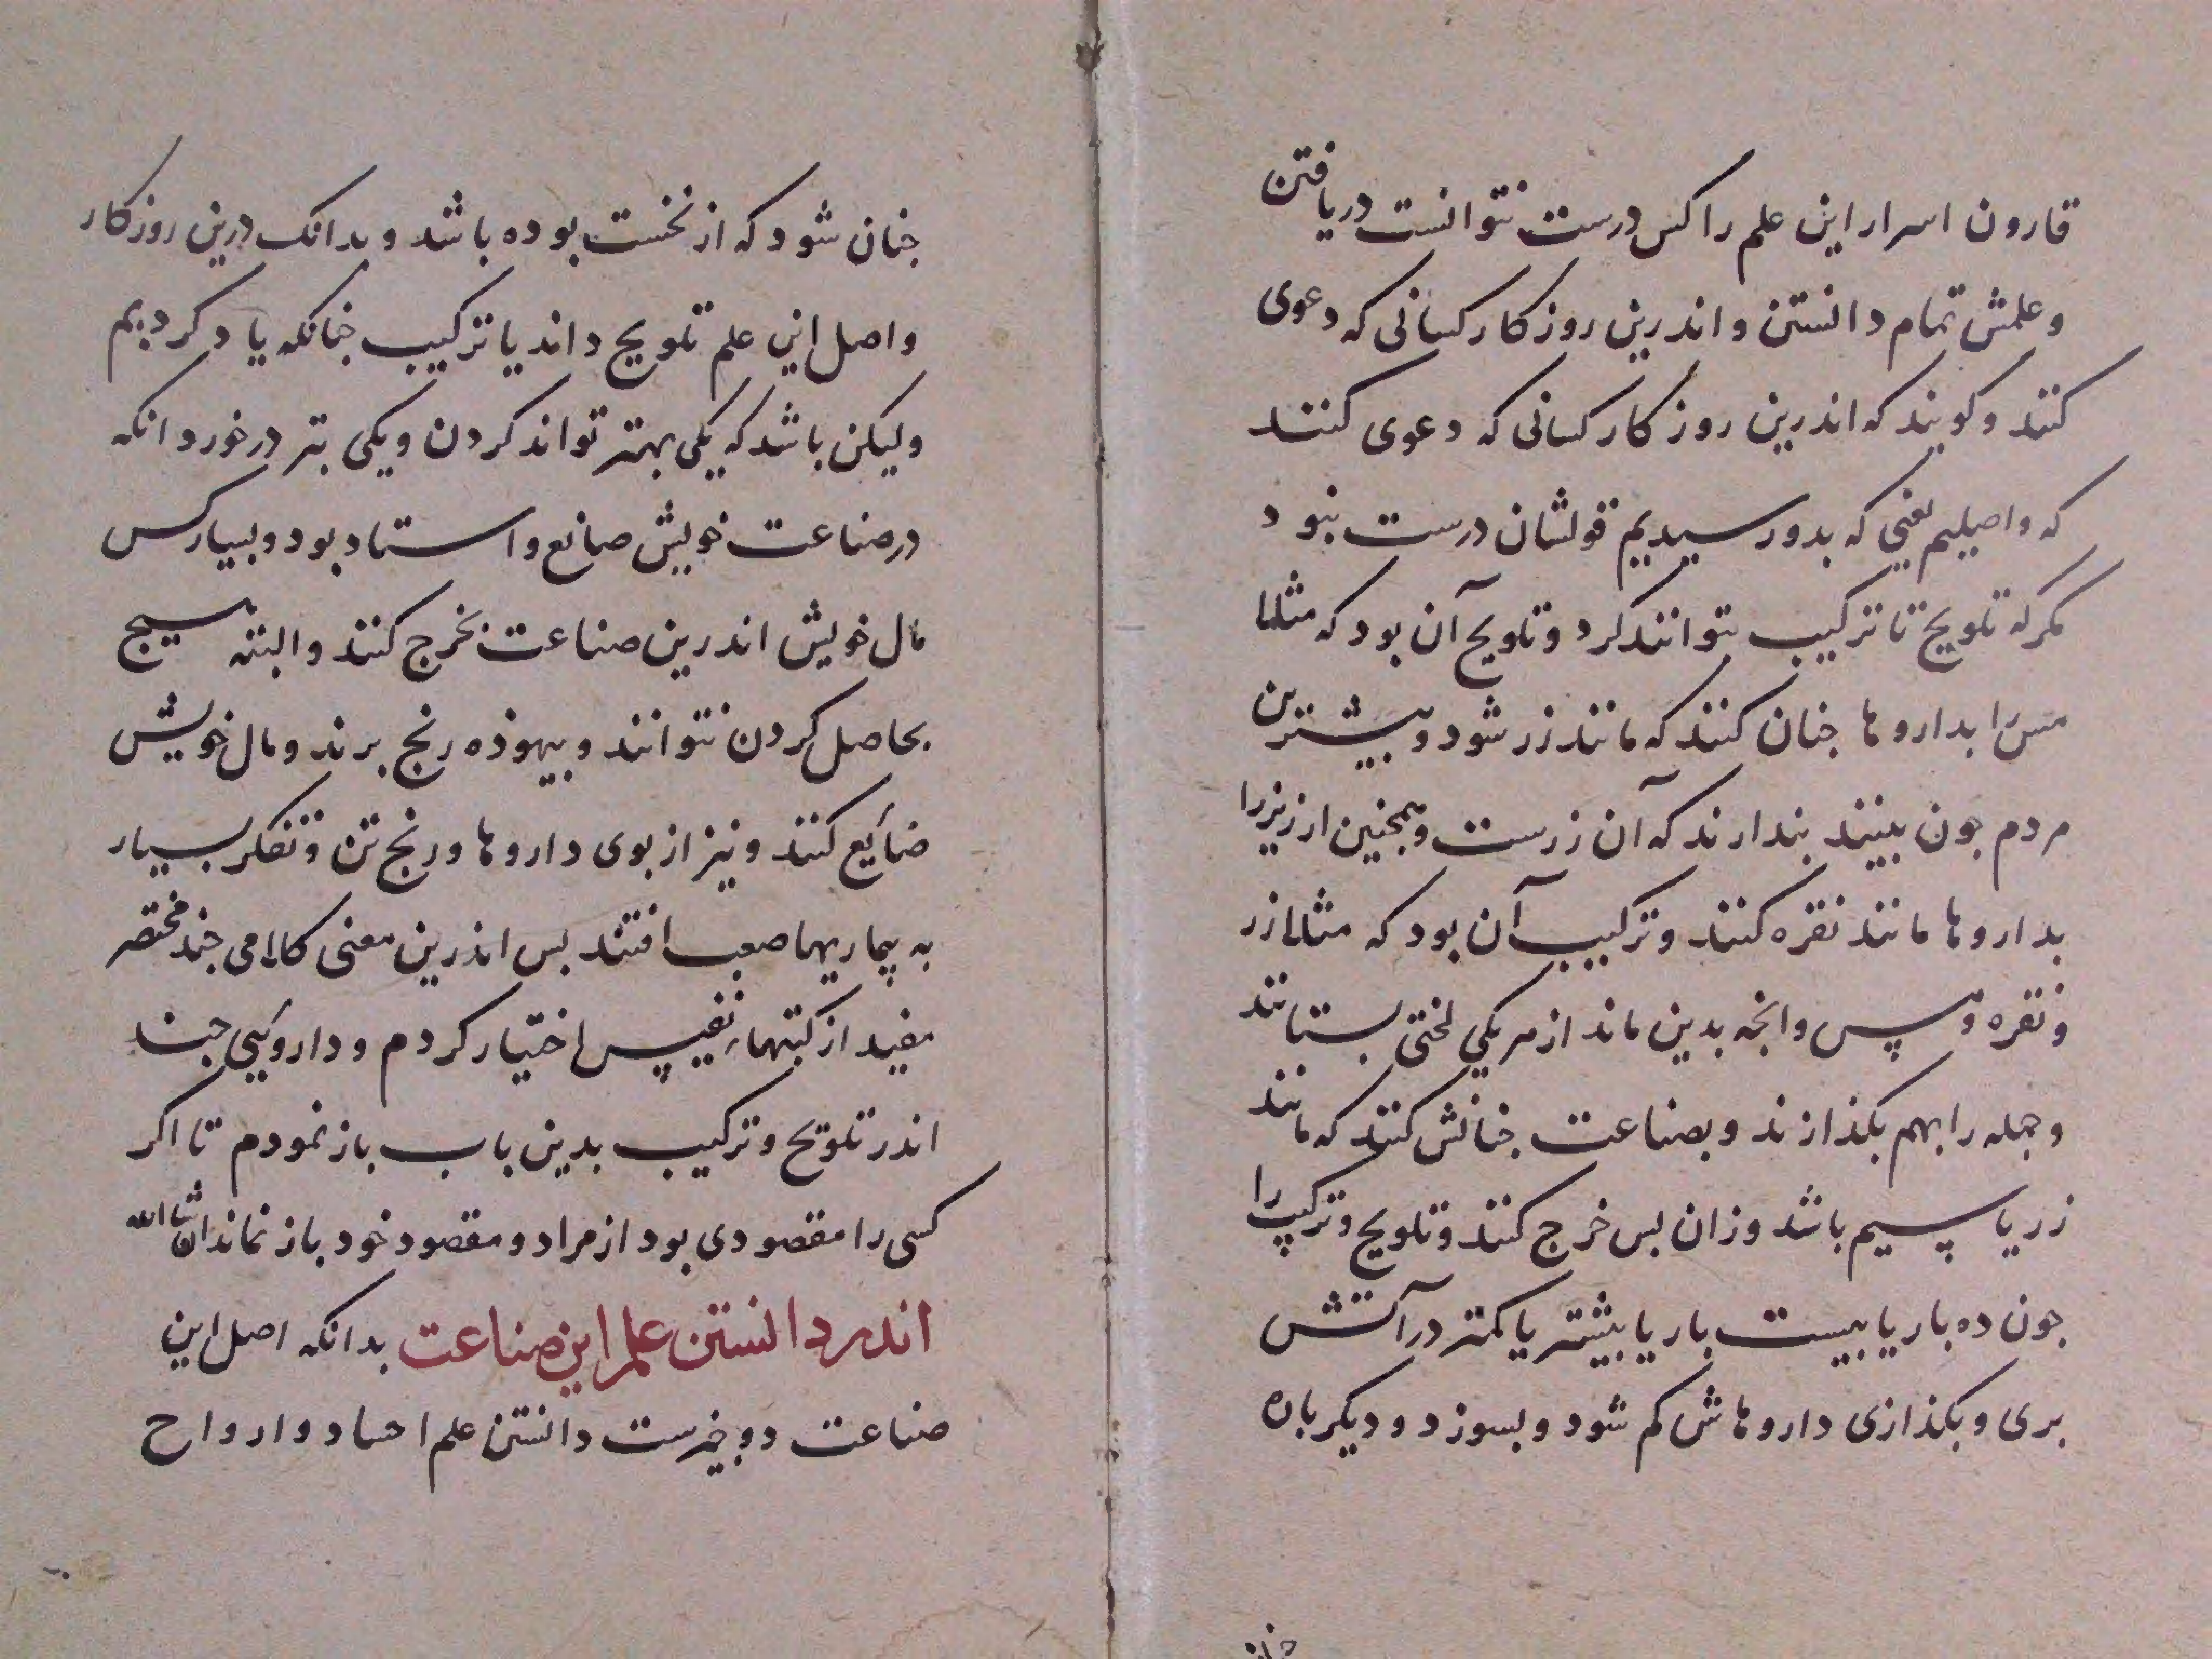 قارون اسرار این علم را کس درست نتوانست دریافتن
وعلمش تمام دانستن و اندرین روزکار کسانی که دعوی
کنند و کویند که اندرین روزکار کسانی که دعوی کنند
که واصیلیم یعنی که بدو رسیدیم قولشان درست نبود
مکر که تلویح تا ترکیب بتوانند کرد و تلویح آن بود که مثلا
مس را بداروها جنان کنند که مانند زر شود و بیشترین
مردم جون بینند بندارند که آن زرست و همجنین ارزیز را
بداروها مانند نقره کنند و ترکیب آن بود که مثلا زر
و نقره و مس و انجه بدین ماند از هر یکی لختی بستانند
و جمله را بهم بکدازند و بصناعت جنانش کنند که مانند
زر یا سیم باشد وزان بس خرج کنند و تلویح و ترکیب را
جون ده بار یا بیست بار یا بیشتر یا کمتر در آتش
بری و بکذازی داروهاش کم شود و بسوزد و دیکر باره
جنان
جنان شود که از نخست بوده باشد و بدانک درین روزکار
واصل این علم تلویح داند یا ترکیب جنانکه یاد کردیم
ولیکن باشد که یکی بهتر تواند کردن و یکی بتر درخورد انکه
در صناعت خویش صانع و استاد بود و بسیار کس
مال خویش اندرین صناعت بخرج کنند و البته هیج
بحاصل کردن نتوانند و بیهوذه رنج برند و مال خویش
ضایع کنند و نیز از بوی داروها و رنج تن و تفکر بسیار
به بیماریها صعب افتند بس اندرین معنی کلامی جند مختصر
مفید از کتبهاء نفیس اختیار کردم و داروئی جند
اندر تلویح و ترکیب بدین باب باز نمودم تا اکر
کسی را مقصودی بود از مراد و مقصود خود باز نماند انشاالله
اندر دانستن علم این صناعت بدانکه اصل این
صناعت دو جیزست دانستن علم احساد و ارواح